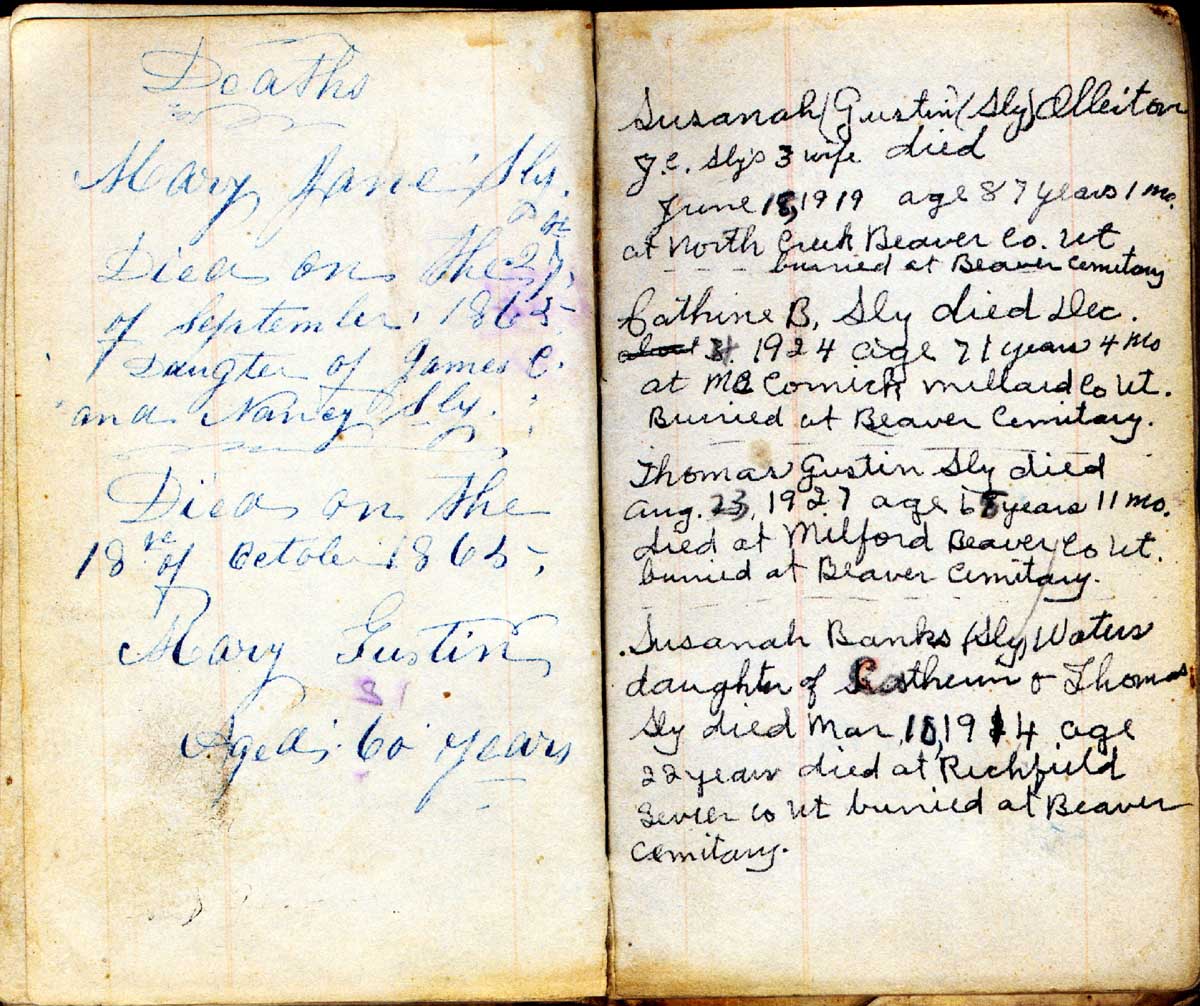 Deaths
Mary Jane Sly.
Died on the 27
of September, 1865
Daugter of James C.
and Nancy Sly.
Died on the
18 of October 1865,
Mary Gustin
81
Aged 60 years
Susanah (Gustin) (Sly)
J.C. Sly's 3 wife died
June 18, 1919 age 87 years 1 mo.
at North Creek Beaver Co. Ut
burried at Beaver Cemitary
Cathine B. Sly died Dec.
1924 age 71 years 4 mo
at McCornick Millard Co Ut.
Burried at Beaver Cemitary.
Thomas Gustin Sly died
Aug. 23, 1927 age years 11 mo.
died at Milford Beaver Co Ut.
burried at Beaver Cemitary.
Susanah Banks (Sly) Waters
daughter of & Thomas
Sly died Mar 1914 age
22 years died at Richfield
Sevier Co Ut burried at Beaver
Cemitary.